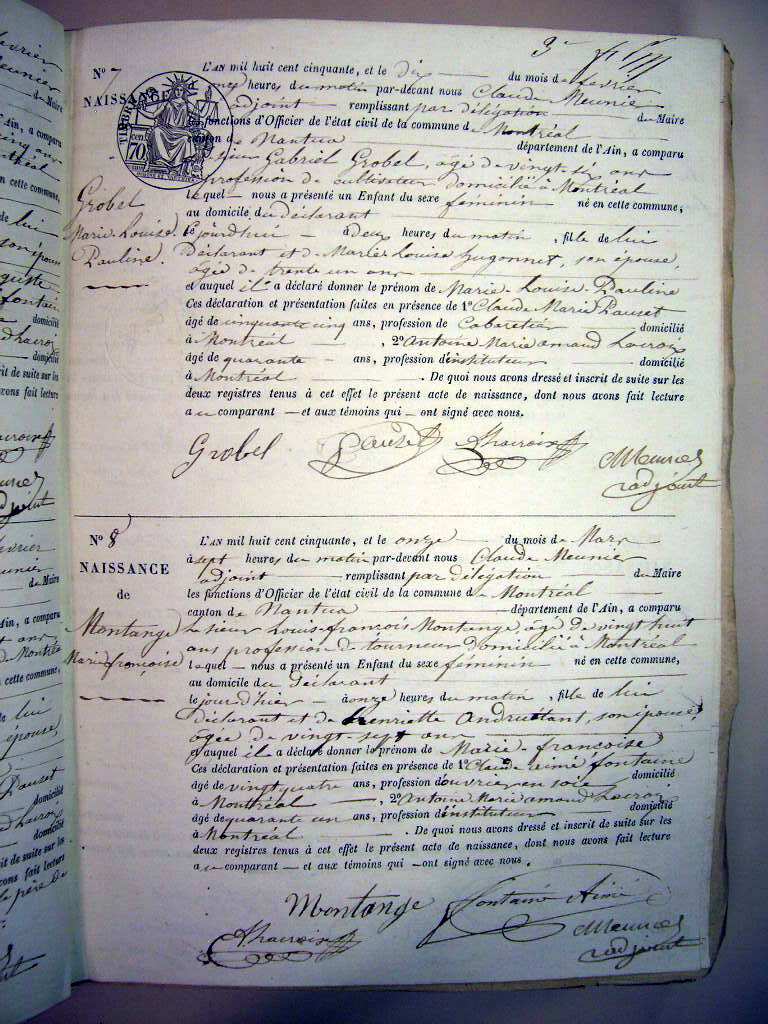 3e
No 7
NAISSANCE
TIMBRE
CEN 70
Grobel
Marie-Louise-
Pauline.
L'AN mil huit cent cinquante, et le dix du mois de février
à onze heures du matin par-devant nous Claude Meunier
adjoint remplissant par délégation du Maire
les fonctions d'Officier de l'état civil de la commune de Montréal
canton de Nantua département de l'Ain, a comparu
le sieur Gabriel Grobel, âgé de vingt six ans
profession de cultivateur domicilié à Montréal
lequel nous a présenté un Enfant du sexe féminin né en cette commune,
au domicile du déclarant
le jourd'hui à deux heures du matin, fille de lui
déclarant et de Marie Louise Gugonnet, son épouse,
agée de trente un ans
et auquel il a déclaré donner le prénom de Marie-Louise-Pauline
Ces déclaration et présentation faites en présence de 1o Claude Marie Pauset
âgé de cinquante cinq ans, profession de Cabaretier domicilié
à Montréal, 2o Antoine Marie amand Lacroix
âgé de quarante ans, profession d'instituteur domicilié
à Montréal. De quoi nous avons dressé et inscrit de suite sur les
deux registres tenus à cet effet le présent acte de naissance, dont nous avons fait lecture
au comparant et aux témoins qui ont signé avec nous.
Grobel Pauset ALacroix CMeunier
adjoint
No 8
NAISSANCE
de
Montange
Marie françoise
L'AN mil huit cent cinquante, et le onze du mois de Mars
à sept heures du matin par-devant nous Claude Meunier
adjoint remplissant par délégation du Maire
les fonctions d'Officier de l'état civil de la commune de Montréal
canton de Nantua département de l'Ain, a comparu
le sieur Louis-françois Montange, âgé de vingt huit
ans profession de tourneur domicilié à Montréal
lequel nous a présenté un Enfant du sexe féminin né en cette commune,
au domicile du Déclarant
le jour d'hier à onze heures du matin, fille de lui
déclarant et de henriette Andruétant, son épouse,
agée de vingt-sept ans
et auquel il a déclaré donner le prénom de Marie-françoise
Ces déclaration et présentation faites en présence de 1o Claude aimé fontaine
âgé de vingt quatre ans, profession d'ouvrier en soie domicilié
à Montréal, 2o Antoine Marie amand Lacroix
âgé de quarante un ans, profession d'instituteur domicilié
à Montréal. De quoi nous avons dressé et inscrit de suite sur les
deux registres tenus à cet effet le présent acte de naissance, dont nous avons fait lecture
au comparant et aux témoins qui ont signé avec nous.
Montange Fontaine Aimé
ALacroix CMeunier
adjoint